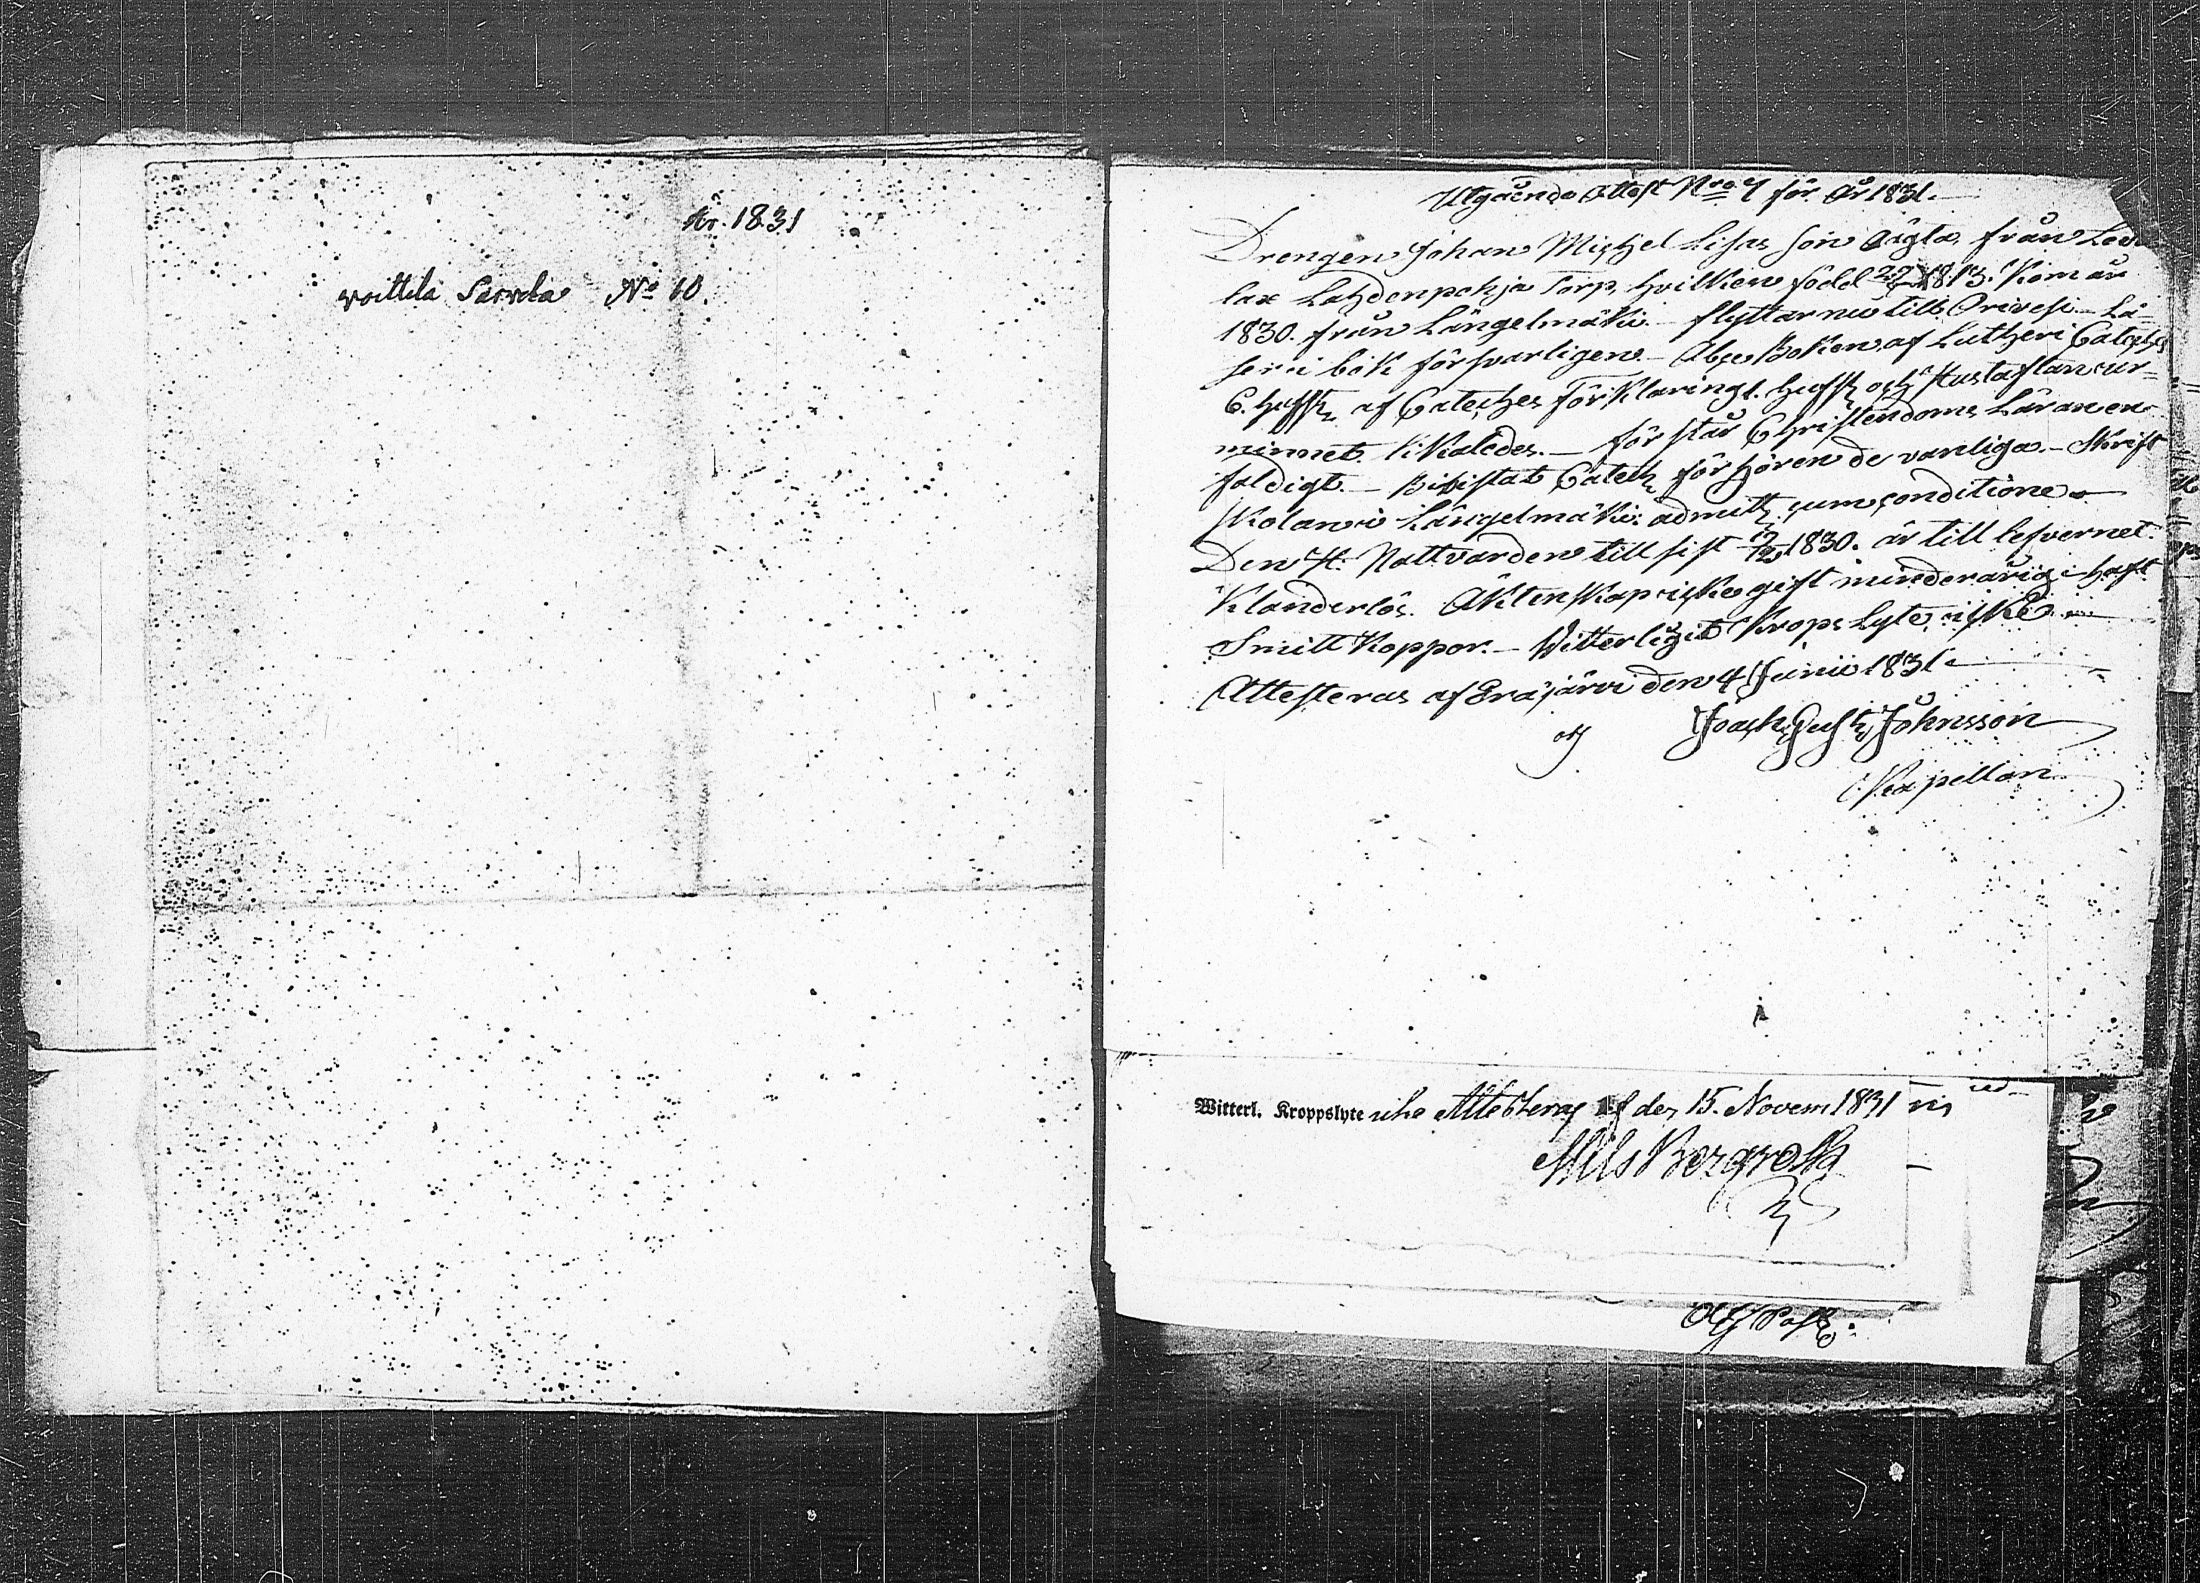 År. 1831
Woittila Sarvela No 10.
Utgående Attest Nro 7 för År 1831.
Drengen Johan Michel Lisas son Oägta från Lev
lax Lahdenpohja Torp, hvilken född 1813. Kom år
1830. från Längelmäki. — flyttar nu till Orivesi. — Lä-
ser i bok försvarligen. — Abc Boken af Lutheri Cateches
6. hufst af Cateches Förklaring 1. hufst och Hustaflan ur
minnet. Likaledes. — förstår Christendoms Läran en-
faldigt. — Bivistat Catech förhören de vanliga. — Skrift
skolan i Längelmäki: admitt cum conditione —
Den H. Nattvarden till sist 1830. är till lefvernet
Klanderlös. Äktenskap icke gift minderårig: haft
Smitt Koppor. — Witterligit Krops Lyte icke. —
Attesteras af Eräjärvi den 4 Junii 1831. —
Joach Gust Johnsson
Kapellan
Witterl. Kroppslyte icke Attesteras af den 15. Novem 1831
Nils Bergroth
Past: